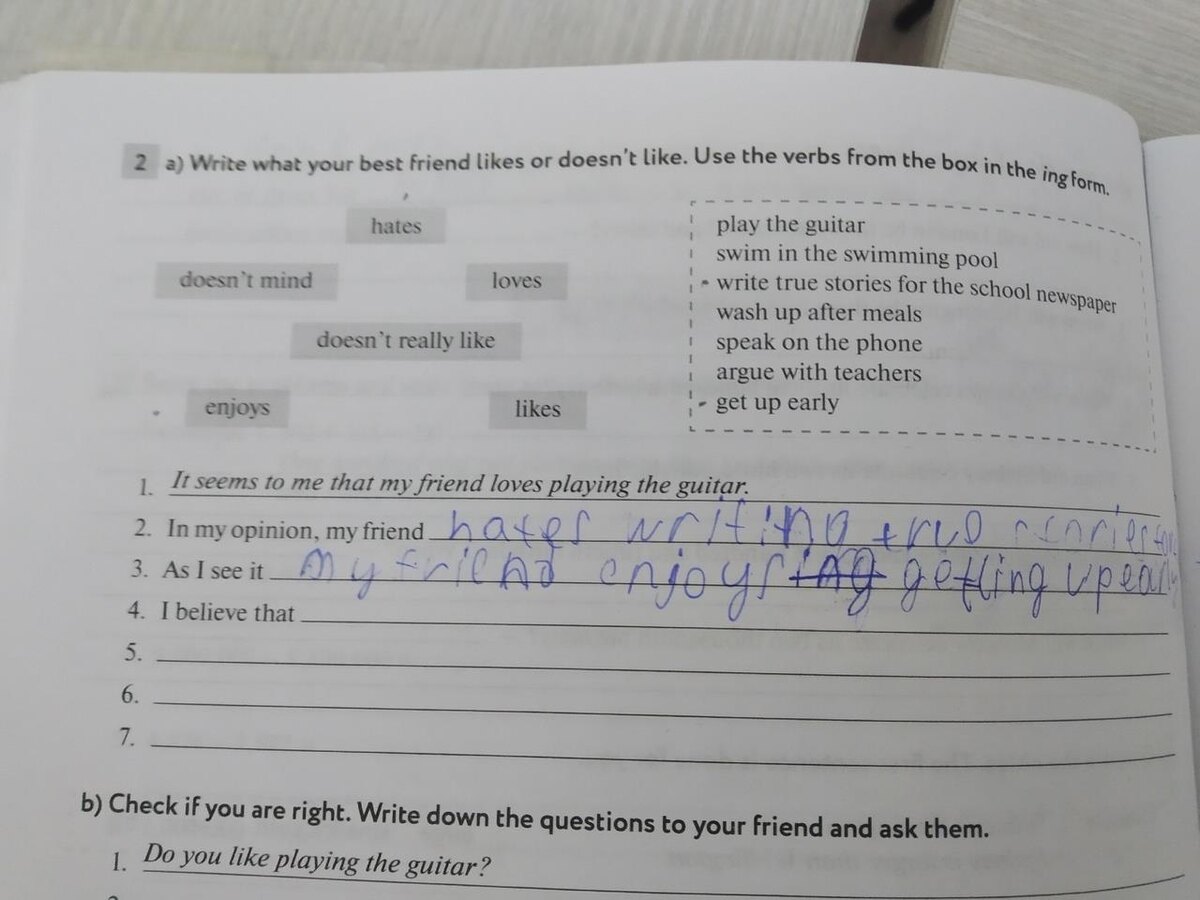 2 a) Write what your best friend likes or doesn't like. Use the verbs from the box in the ing form.
hates
doesn't mind
loves
doesn't really like
enjoys
likes
play the guitar
swim in the swimming pool
write true stories for the school newspaper
wash up after meals
speak on the phone
argue with teachers
get up early
1. It seems to me that my friend loves playing the guitar.
2. In my opinion, my friend hates writing
3. As I see it my friend enjoys getting up early
4. I believe that
5.
6.
7.
b) Check if you are right. Write down the questions to your friend and ask them.
1. Do you like playing the guitar?